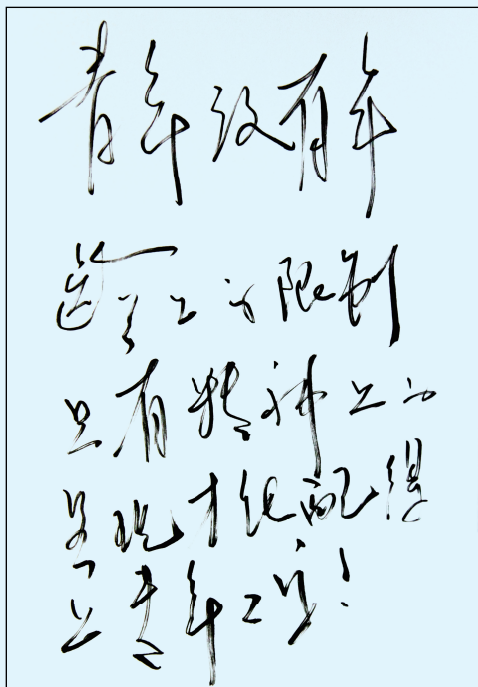 青年没有年
龄上的限制
只有精神上的
呈现才能配得
上青年二字！